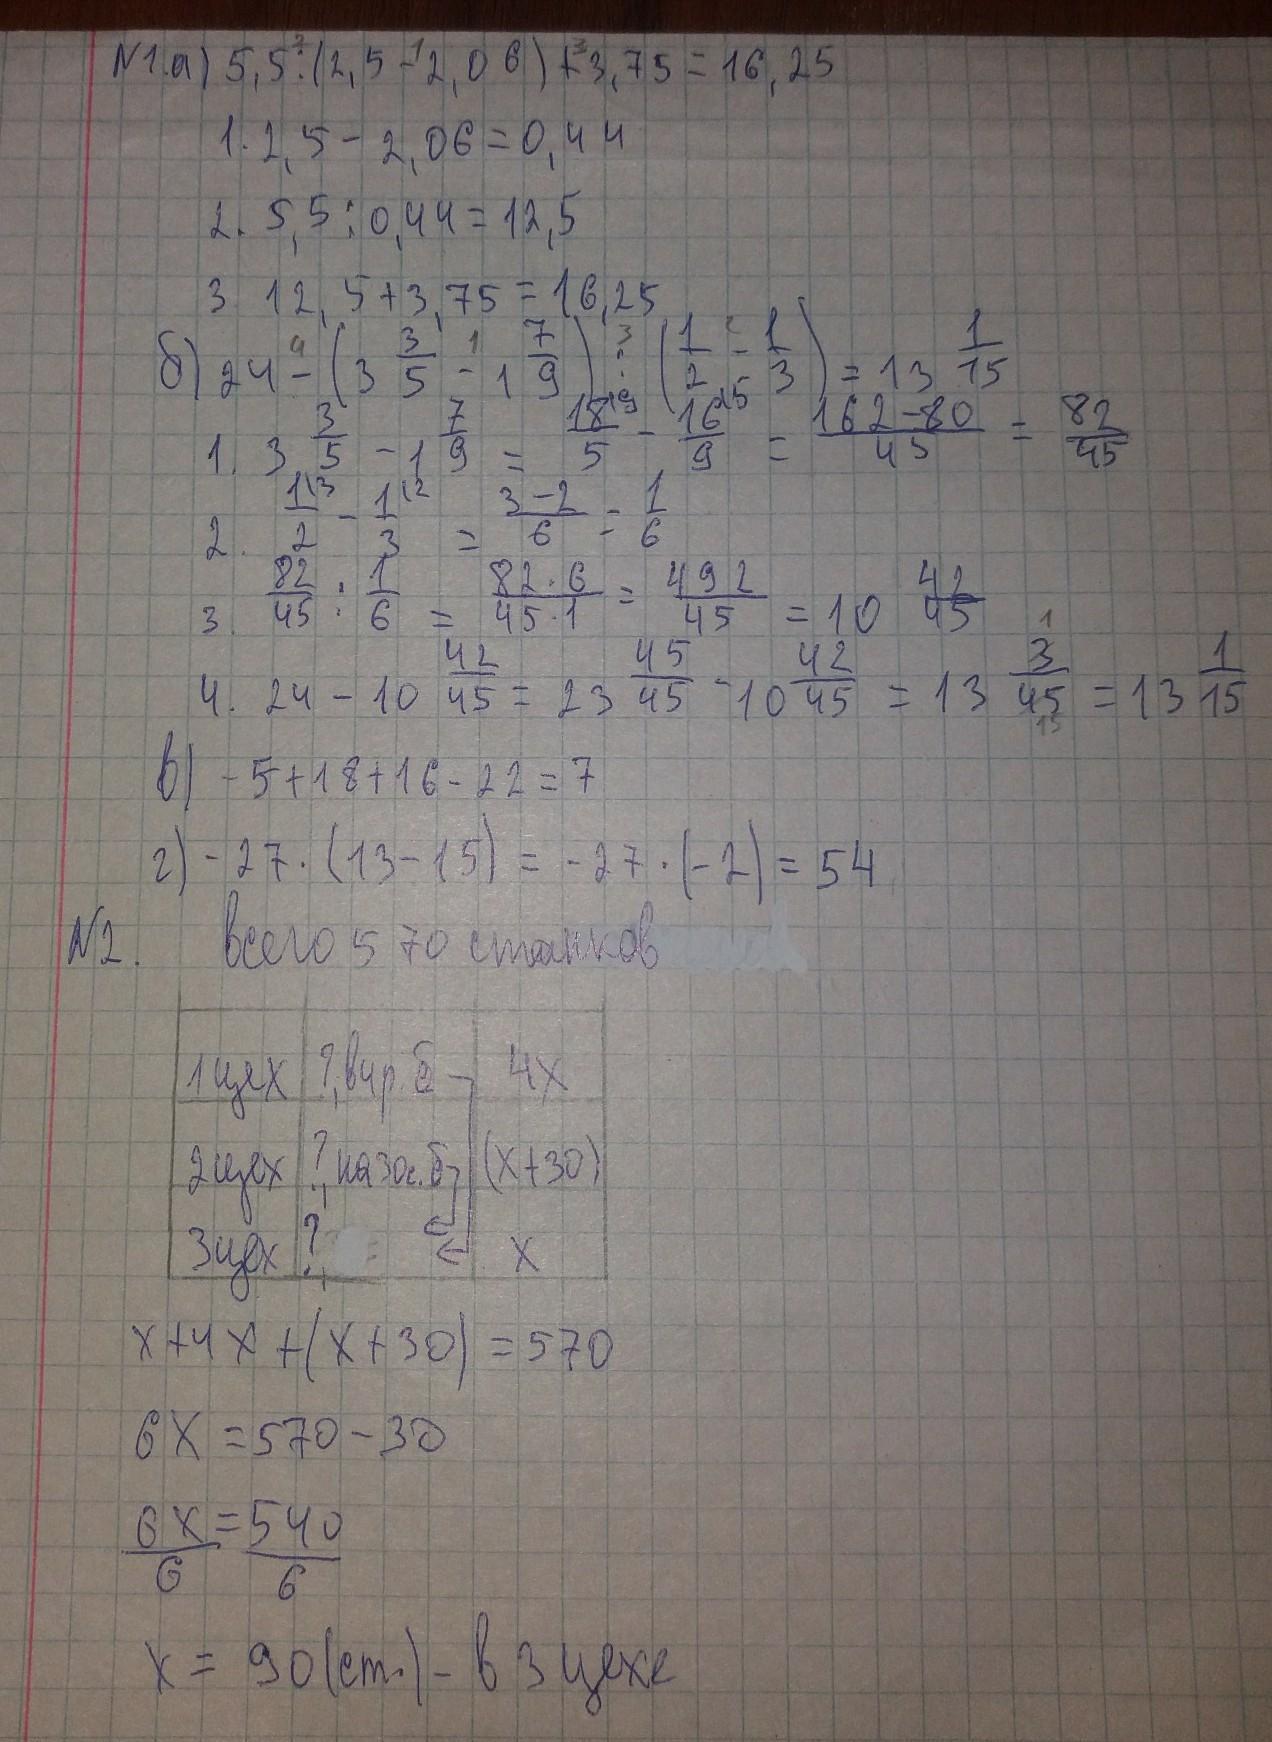 N1.а) 5,5:(2,5-2,06)+3,75=16,25
1. 2,5-2,06=0,44
2. 5,5:0,44=12,5
3. 12,5+3,75=16,25
б) 24-(3 3/5 - 1 7/9):(1/2 - 1/3)=13 1/15
1. 3 3/5 - 1 7/9 = 18\9/5 - 16\5/9 = 162-80/45 = 82/45
2. 1\3/2 - 1\2/3 = 3-2/6 = 1/6
3. 82/45 : 1/6 = 82·6/45·1 = 492/45 = 10 42/45
4. 24 - 10 42/45 = 23 45/45 - 10 42/45 = 13 3/45 = 13 1/15
в) -5+18+16-22=7
г) -27·(13-15)=-27·(-2)=54
N2. всего 570 станков
1цех ?, в чр. б 4x
2цех ?, на 30с. б (x+30)
3цех ? x
x+4x+(x+30)=570
6x=570-30
6x/6=540/6
x=90(ст.)-в 3 цехе